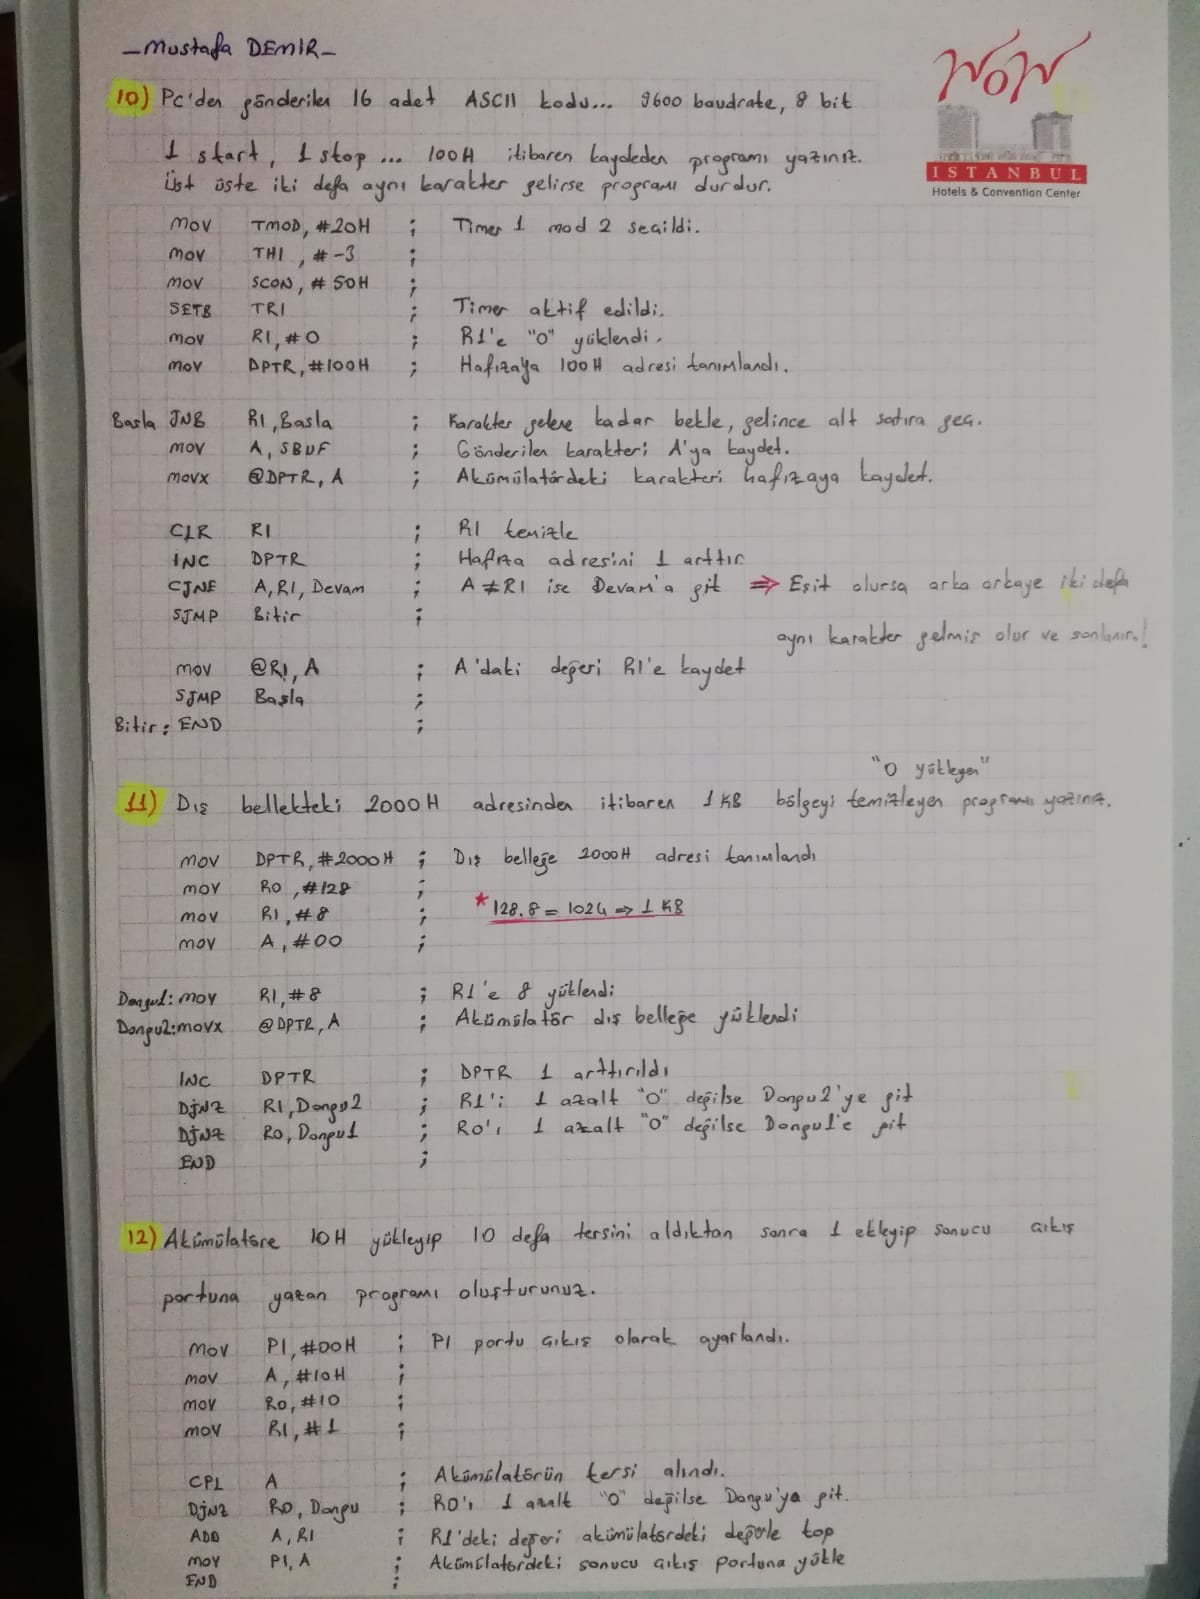 -Mustafa DEMİR-
WOW
İSTANBUL
Hotels & Convention Center
10) Pc'den gönderilen 16 adet ASCII kodu... 9600 baudrate, 8 bit
1 start, 1 stop ... 100H itibaren kaydeden programı yazınız.
Üst üste iki defa aynı karakter gelirse programı durdur.
MOV TMOD, #20H ; Timer 1 mod 2 seçildi.
MOV TH1, #-3 ;
MOV SCON, #50H ;
SETB TR1 ; Timer aktif edildi.
MOV R1, #0 ; R1'e "0" yüklendi.
MOV DPTR, #100H ; Hafızaya 100H adresi tanımlandı.
Basla JNB RI, Basla ; Karakter gelene kadar bekle, gelince alt satıra geç.
MOV A, SBUF ; Gönderilen karakteri A'ya kaydet.
MOVX @DPTR, A ; Akümülatördeki karakteri hafızaya kaydet.
CLR RI ; RI temizle
INC DPTR ; Hafıza adresini 1 arttır
CJNE A, R1, Devam ; A≠R1 ise Devam'a git ⇒ Eşit olursa arka arkaya iki defa
SJMP Bitir ; aynı karakter gelmiş olur ve sonlanır!
MOV @R1, A ; A'daki değeri R1'e kaydet
SJMP Başla ;
Bitir: END ;
"0 yükleyen"
11) Dış bellekteki 2000H adresinden itibaren 1 KB bölgeyi temizleyen programı yazınız.
MOV DPTR, #2000H ; Dış belleğe 2000H adresi tanımlandı
MOV R0, #128 ;
MOV R1, #8 ; *128.8 = 1024 ⇒ 1 KB
MOV A, #00 ;
Dongu1: MOV R1, #8 ; R1'e 8 yüklendi
Dongu2: MOVX @DPTR, A ; Akümülatör dış belleğe yüklendi
INC DPTR ; DPTR 1 arttırıldı
DJNZ R1, Dongu2 ; R1'i 1 azalt "0" değilse Dongu2'ye git
DJNZ R0, Dongu1 ; R0'ı 1 azalt "0" değilse Dongu1'e git
END ;
12) Akümülatöre 10H yükleyip 10 defa tersini aldıktan sonra 1 ekleyip sonucu çıkış
portuna yazan programı oluşturunuz.
MOV P1, #00H ; P1 portu çıkış olarak ayarlandı.
MOV A, #10H ;
MOV R0, #10 ;
MOV R1, #1 ;
CPL A ; Akümülatörün tersi alındı.
DJNZ R0, Dongu ; R0'ı 1 azalt "0" değilse Dongu'ya git.
ADD A, R1 ; R1'deki değeri akümülatördeki değerle top
MOV P1, A ; Akümülatördeki sonucu çıkış portuna yükle
END ;